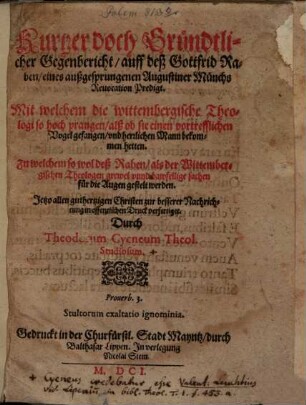 Kurtzer doch Gründtli-
cher Gegenbericht / auff deß Gottfrid Ra-
ben / eines außgesprungenen Augustiner Münchs
Revocation Predigt.
Mit welchem die wittembergische Theo-
logi so hoch prangen / alß ob sie einen vortrefflichen
Vogel gefangen / vnd herlichen Mann bekom-
men hetten.
Zu welchem so wol deß Raben / als der Wittember-
gischen Theologen grewel vnnd bawfellige sachen
für die Augen gestelt worden.
Jetzo allen guthertzigen Christen zur besserer Nachrich-
tung in offentlichen Druck verfertiget
Durch
Theodorum Cyeneum Theol.
Studiosum. +
Proverb. 3.
Stultorum exaltatio ignominia.
Gedruckt in der Churfürstl. Stadt Mayntz / durch
Balthasar Lippen. In verlegung
Nicolai Stein.
M. DCI.